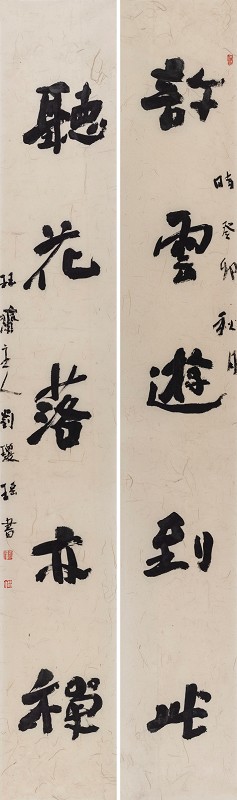 許雲遊到此
時癸卯秋月
聽花落亦禪
齋主人劉書